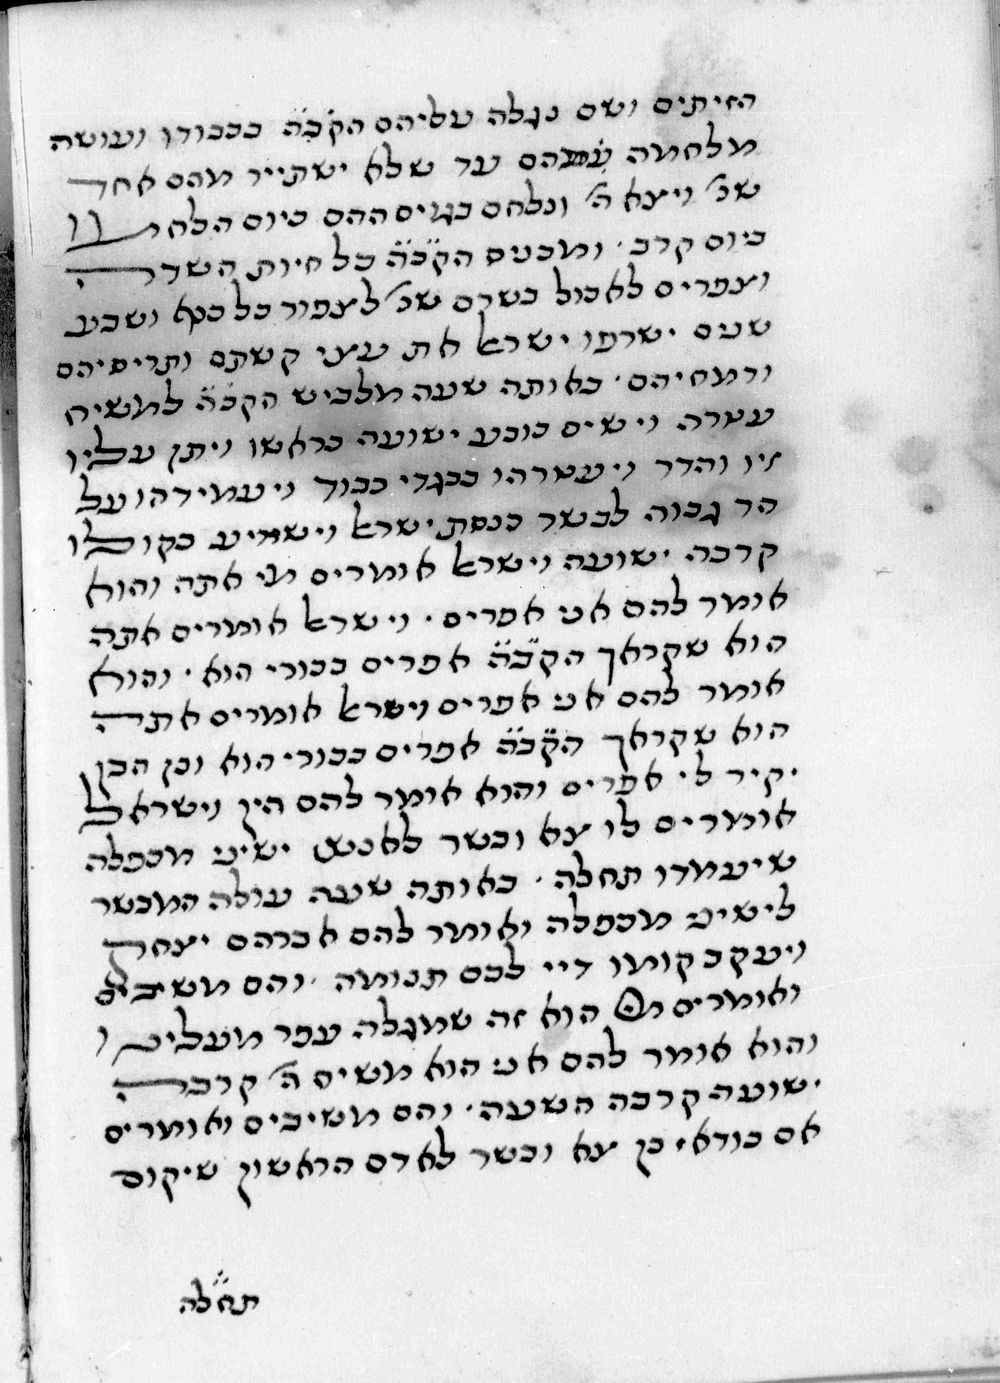 הזיתים ושם נגלה עליהם הקב״ה בכבודו ועושה
מלחמה עמהם עד שלא ישתייר מהם אחד
שנ׳ ויצא ה׳ ונלחם בגוים ההם כיום הלחמו
ביום קרב · ומכניס הקב״ה כל חיות השדה
וצפרים לאכול בשרם שנ׳ לצפור כל כנף ושבע
שנים ישרפו ישראל את עצי קשתם ותריסיהם
ורמחיהם · באותה שעה מלביש הקב״ה למשיח
עטרה וישים כובע ישועה בראשו ויתן עליו
זיו והדר ויעטרהו בבגדי כבוד ויעמידהו על
הר גבוה לבשר כנסת ישראל וישמיע בקולו
קרבה ישועה וישראל אומרים מי אתה והוא
אומר להם אני אפרים · וישראל אומרים אתה
הוא שקראך הקב״ה אפרים בכורי הוא · והוא
אומר להם אני אפרים וישראל אומרים אתה
הוא שקראך הקב״ה אפרים בכורי הוא וכן הבן
יקיר לי אפרים והוא אומר להם הין וישראל
אומרים לו צא ובשר לאנשי ישיני מכפלה
שיעמדו תחלה · באותה שעה עולה המבשר
לישיני מכפלה ואומר להם אברהם יצחק
ויעקב קומו דיי לכם תנומה · והם משיבים
ואומרים מי הוא זה שמגלה עפר מעלינו
והוא אומר להם אני הוא משיח ה׳ קרבה
ישועה קרבה השעה · והם משיבים ואומרים
אם בודאי כן צא ובשר לאדם הראשון שיקום
תחלה